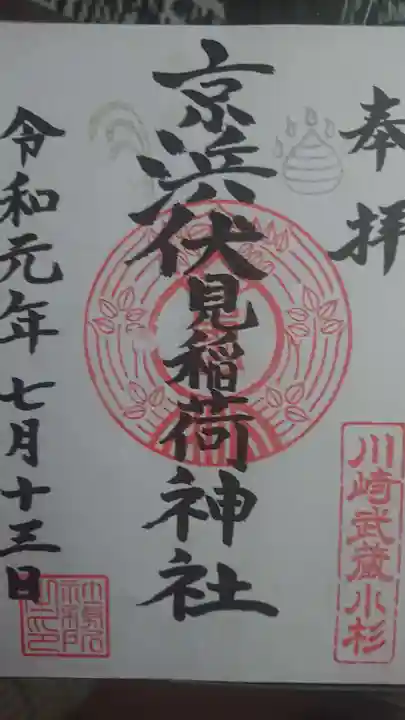 奉拝
川崎武蔵小杉
京浜伏見稲荷神社
令和元年七月十三日